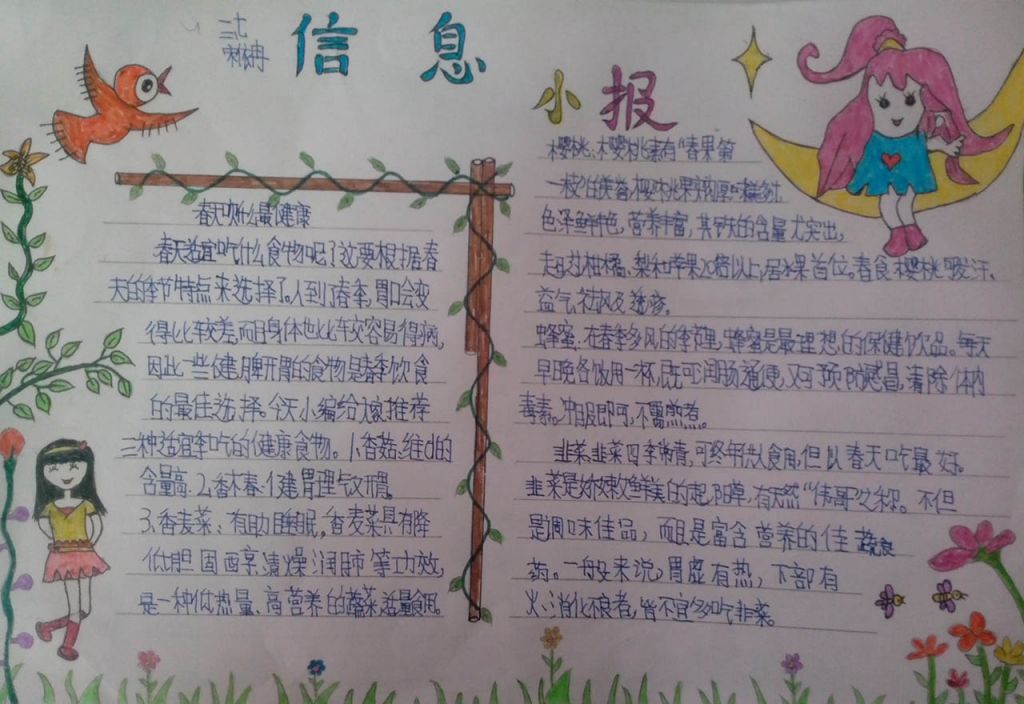 三七
信息
小报
春天吃什么最健康
春天适宜吃什么食物呢？这要根据春
天的季节特点来选择了。人到了春季，胃口会变
得比较差，而且身体也比较容易得病，
因此一些健脾开胃的食物是春季饮食
的最佳选择。今天小编给大家推荐
三种适宜春季吃的健康食物。1、香菇：维d的
含量高。2、香椿：健胃理气开胃。
3、香麦菜：有助睡眠，香麦菜具有降
低胆固醇、清燥润肺等功效，
是一种低热量、高营养的蔬菜适量食用。
樱桃：樱桃素有“春果第
一枝”的美誉，樱桃果实肉厚，味美多汁
色泽鲜艳，营养丰富，其铁的含量尤突出，
超过柑橘、梨和苹果20倍以上，居水果首位。春食樱桃可发汗、
益气、祛风及透疹。
蜂蜜：在春季多风的季节里，蜂蜜是最理想的保健饮品。每天
早晚各饮用一杯，既可润肠通便，又可预防感冒，清除体内
毒素。冲服即可，不需煎煮。
韭菜：韭菜四季常青，可终年供人食用，但以春天吃最好。
韭菜是娇嫩鲜美的起阳草，有天然“伟哥”之称。不但
是调味佳品，而且是富含营养的佳蔬食
药。一般来说，胃虚有热，下部有
火，消化不良者，皆不宜多吃韭菜。